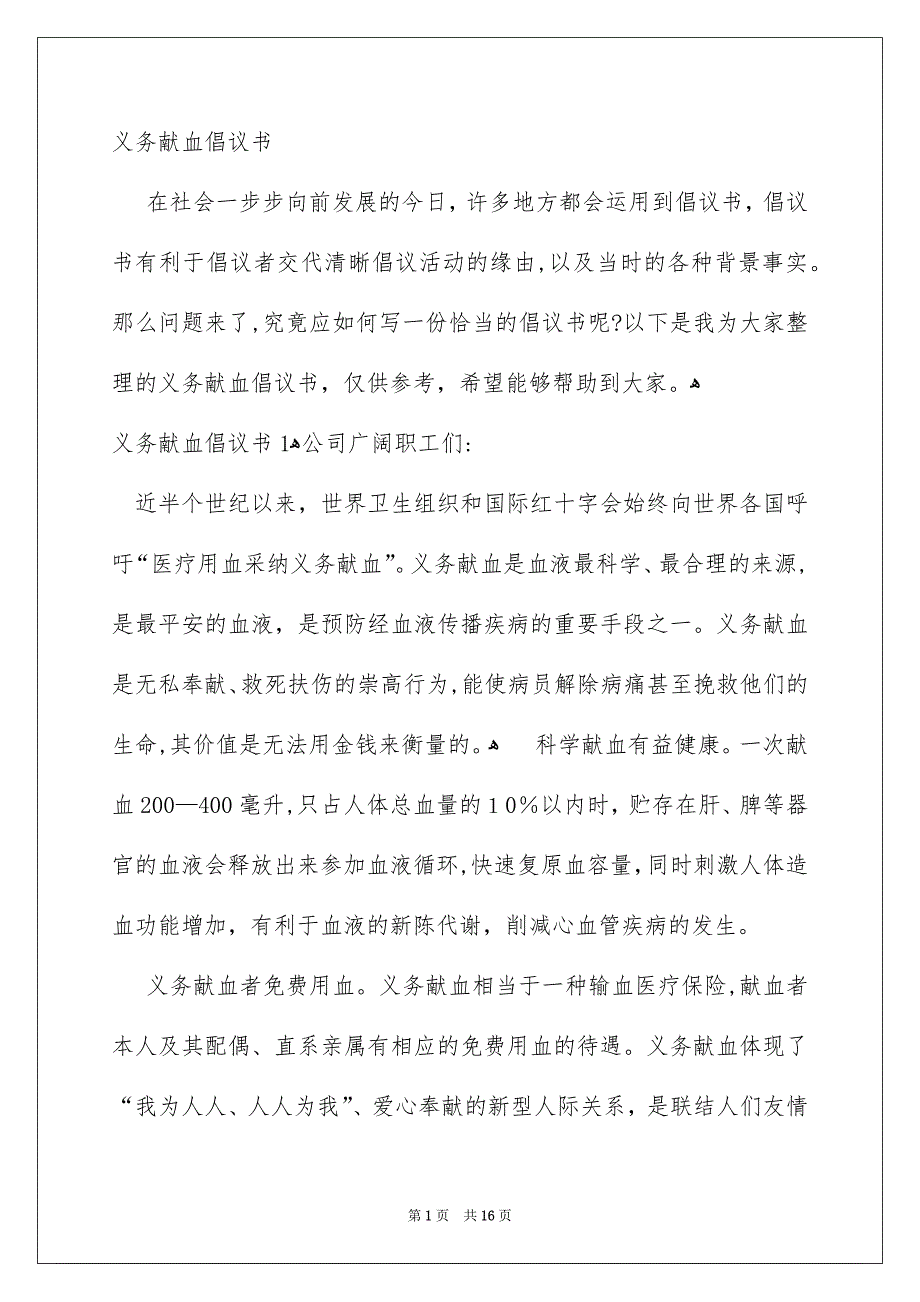 义务献血倡议书
在社会一步步向前发展的今日，许多地方都会运用到倡议书，倡议
书有利于倡议者交代清晰倡议活动的缘由,以及当时的各种背景事实。
那么问题来了,究竟应如何写一份恰当的倡议书呢?以下是我为大家整
理的义务献血倡议书，仅供参考，希望能够帮助到大家。ﻫ
义务献血倡议书1ﻫ公司广阔职工们:
近半个世纪以来，世界卫生组织和国际红十字会始终向世界各国呼
吁“医疗用血采纳义务献血”。义务献血是血液最科学、最合理的来源,
是最平安的血液，是预防经血液传播疾病的重要手段之一。义务献血
是无私奉献、救死扶伤的崇高行为,能使病员解除病痛甚至挽救他们的
生命,其价值是无法用金钱来衡量的。ﻫ 科学献血有益健康。一次献
血200—400毫升,只占人体总血量的１0％以内时，贮存在肝、脾等器
官的血液会释放出来参加血液循环,快速复原血容量，同时刺激人体造
血功能增加，有利于血液的新陈代谢，削减心血管疾病的发生。
义务献血者免费用血。义务献血相当于一种输血医疗保险,献血者
本人及其配偶、直系亲属有相应的免费用血的待遇。义务献血体现了
“我为人人、人人为我”、爱心奉献的新型人际关系，是联结人们友情
第 1 页 共 16 页